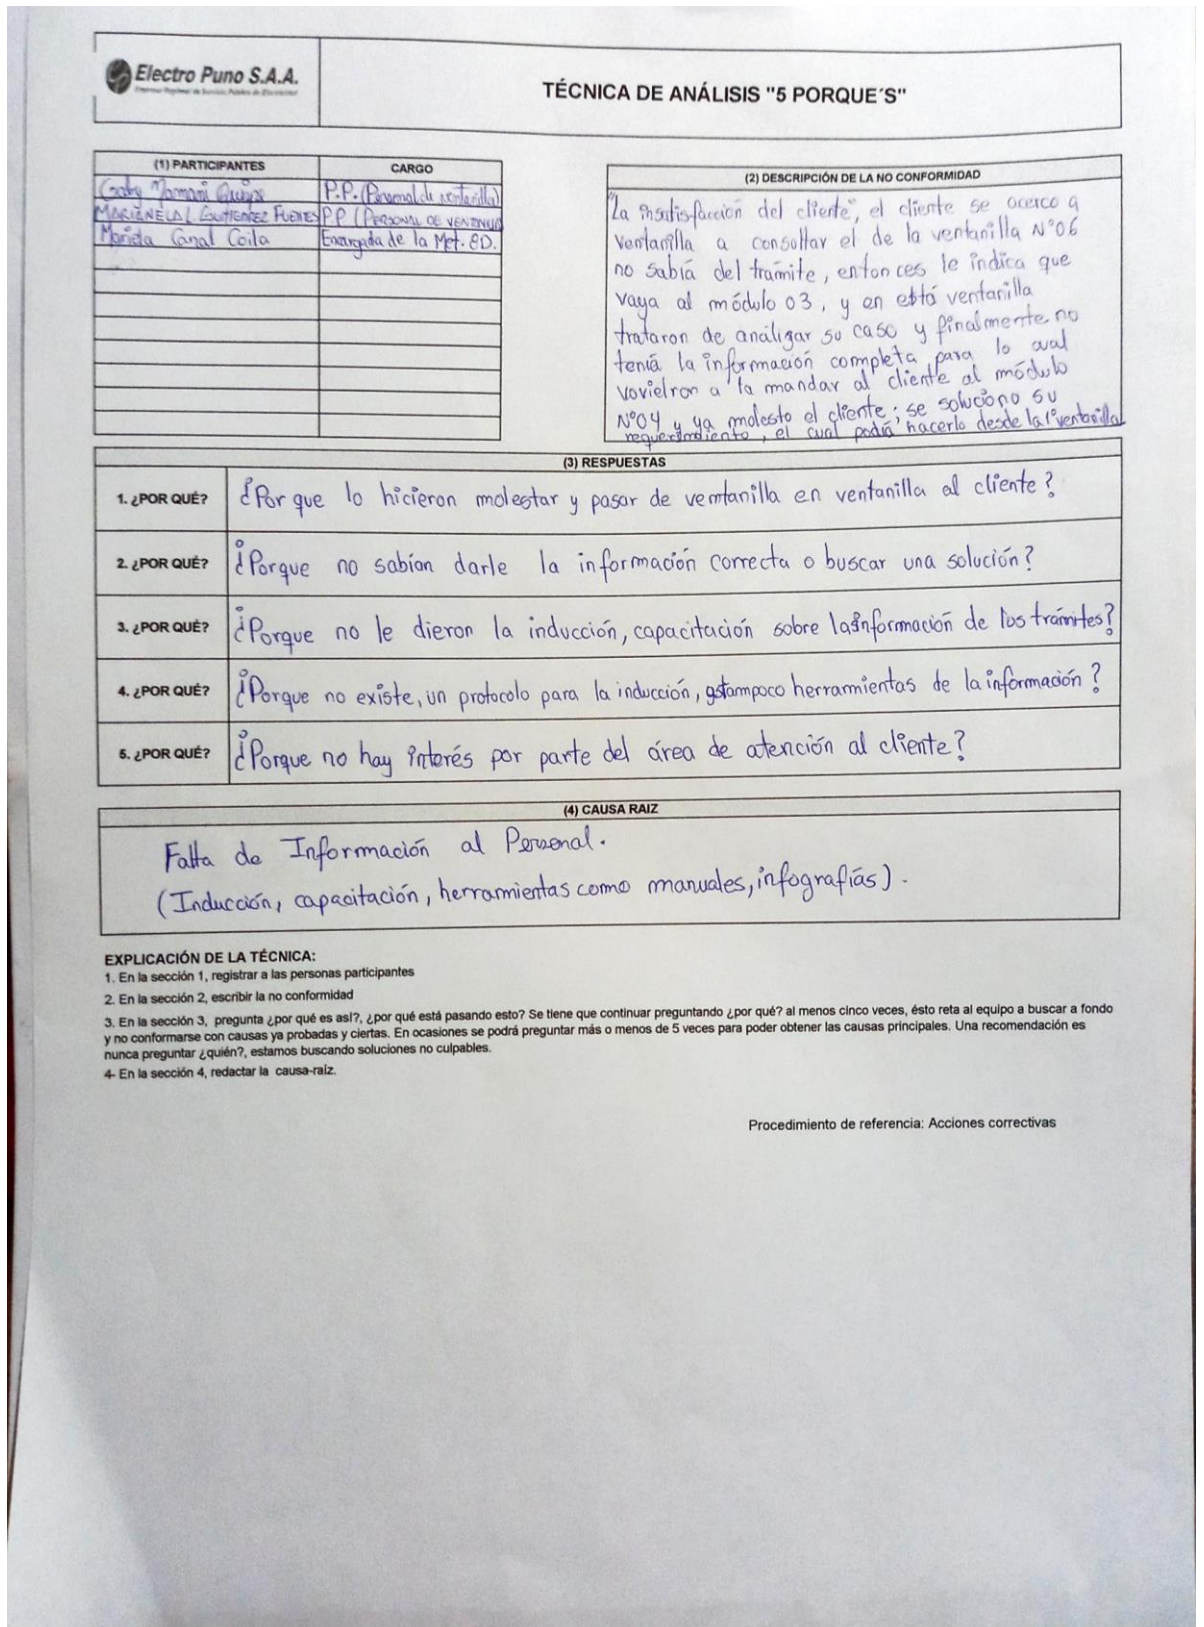 Electro Puno S.A.A.
Empresa Regional de Servicio Público de Electricidad
TÉCNICA DE ANÁLISIS "5 PORQUE´S"
(1) PARTICIPANTES
CARGO
Gaby Mamani Quispe
P.P. (Personal de ventanilla)
MARIENELA GUTIERREZ FUENTES
P.P (PERSONAL DE VENTANILLA
Marieta Canal Coila
Encargada de la Met. 8D.
(2) DESCRIPCIÓN DE LA NO CONFORMIDAD
"La insatisfacción del cliente", el cliente se acerco a
ventanilla a consultar el de la ventanilla N°06
no sabiá del tramite, entonces le indica que
vaya al módulo 03, y en está ventanilla
trataron de analigar su caso y finalmente no
teniá la información completa para lo cual
vovielron a la mandar al cliente al módulo
N°04 y ya molesto el cliente; se soluciono su
requerimdiento, el cual podiá hacerlo desde la 1° ventanilla
(3) RESPUESTAS
1. ¿POR QUÉ?
¿Por que lo hicieron molestar y pasar de ventanilla en ventanilla al cliente?
2. ¿POR QUÉ?
¿Porque no sabían darle la información correcta o buscar una solución?
3. ¿POR QUÉ?
¿Porque no le dieron la inducción, capacitación sobre la información de los trámites?
4. ¿POR QUÉ?
¿Porque no existe, un protocolo para la inducción, tampoco herramientas de la información?
5. ¿POR QUÉ?
¿Porque no hay interés por parte del área de atención al cliente?
(4) CAUSA RAIZ
Falta de Información al Personal.
(Inducción, capacitación, herramientas como manuales, infografiás).
EXPLICACIÓN DE LA TÉCNICA:
1. En la sección 1, registrar a las personas participantes
2. En la sección 2, escribir la no conformidad
3. En la sección 3, pregunta ¿por qué es así?, ¿por qué está pasando esto? Se tiene que continuar preguntando ¿por qué? al menos cinco veces, ésto reta al equipo a buscar a fondo
y no conformarse con causas ya probadas y ciertas. En ocasiones se podrá preguntar más o menos de 5 veces para poder obtener las causas principales. Una recomendación es
nunca preguntar ¿quién?, estamos buscando soluciones no culpables.
4- En la sección 4, redactar la causa-raíz.
Procedimiento de referencia: Acciones correctivas